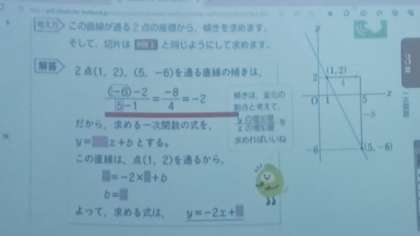 考え方 この直線が通る2点の座標から、傾きを求めます。
そして、切片は と同じようにして求めます。
解答
2点(1, 2), (5, -6)を通る直線の傾きは、
(-6)-2 / 5-1 = -8 / 4 = -2
だから、求める一次関数の式を、
y= x+bとする。
この直線は、点(1, 2)を通るから、
=-2× +b
b=
よって、求める式は、 y=-2x+
傾きは、変化の
割合と考えて、
yの増加量
xの増加量 を
求めればいいね
2
(1, 2)
4
0
1
5
-8
-6
(5, -6)
3章